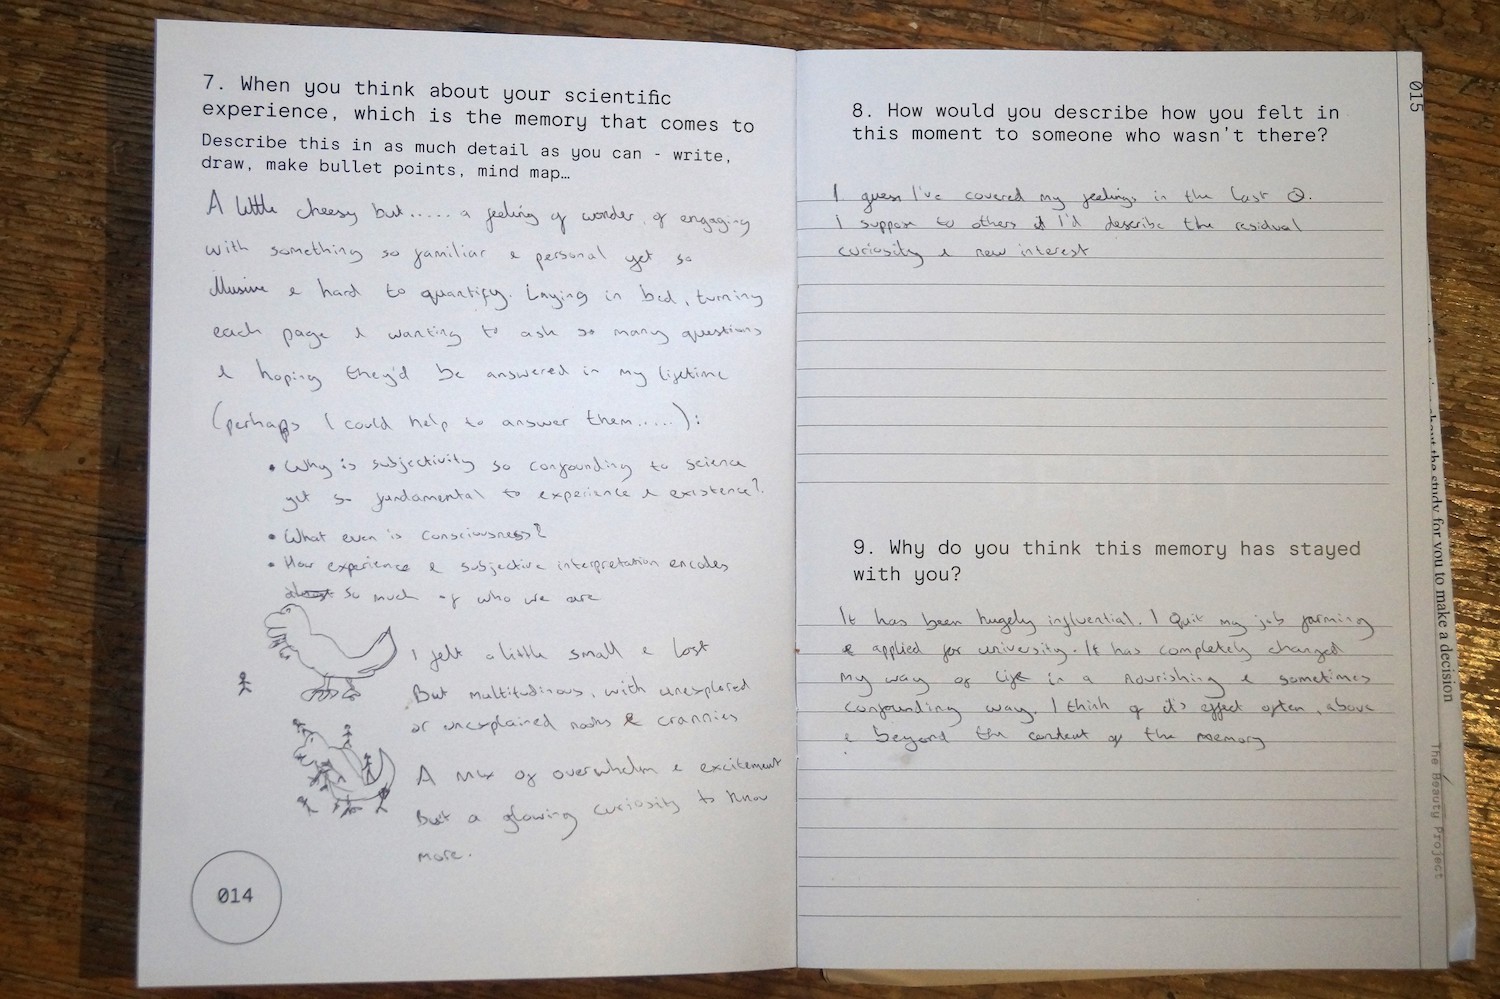 7. When you think about your scientific
experience, which is the memory that comes to
Describe this in as much detail as you can - write,
draw, make bullet points, mind map…
A little cheesy but..... a feeling of wonder, of engaging
with something so familiar & personal yet so
illusive & hard to quantify. Laying in bed, turning
each page & wanting to ask so many questions
& hoping they'd be answered in my lifetime
(perhaps I could help to answer them.....):
• Why is subjectivity so confounding to science
yet so fundamental to experience & existence?
• What even is consciousness?
• How experience & subjective interpretation encodes
so much of who we are
I felt a little small & lost
But multitudinous, with unexplored
or unexplained nooks & crannies
A mix of overwhelm & excitement
But a glowing curiosity to know
more.
014
8. How would you describe how you felt in
this moment to someone who wasn't there?
I guess I've covered my feelings in the last Q.
I suppose to others I'd describe the residual
curiosity & new interest
9. Why do you think this memory has stayed
with you?
It has been hugely influential. I quit my job farming
& applied for university. It has completely changed
my way of life in a nourishing & sometimes
confounding way. I think of it's effect often, above
& beyond the content of the memory
015
about the study for you to make a decision
The Beauty Project